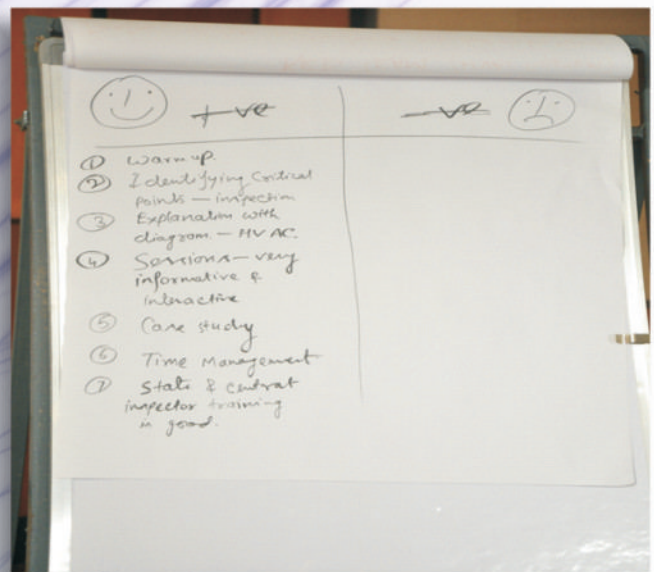 +ve -ve
① Warm up.
② Identifying Critical
points — inspection
③ Explanation with
diagram. — HVAC.
④ Sessions — very
informative &
interactive
⑤ Case study
⑥ Time Management
⑦ State & central
inspector training
is good.